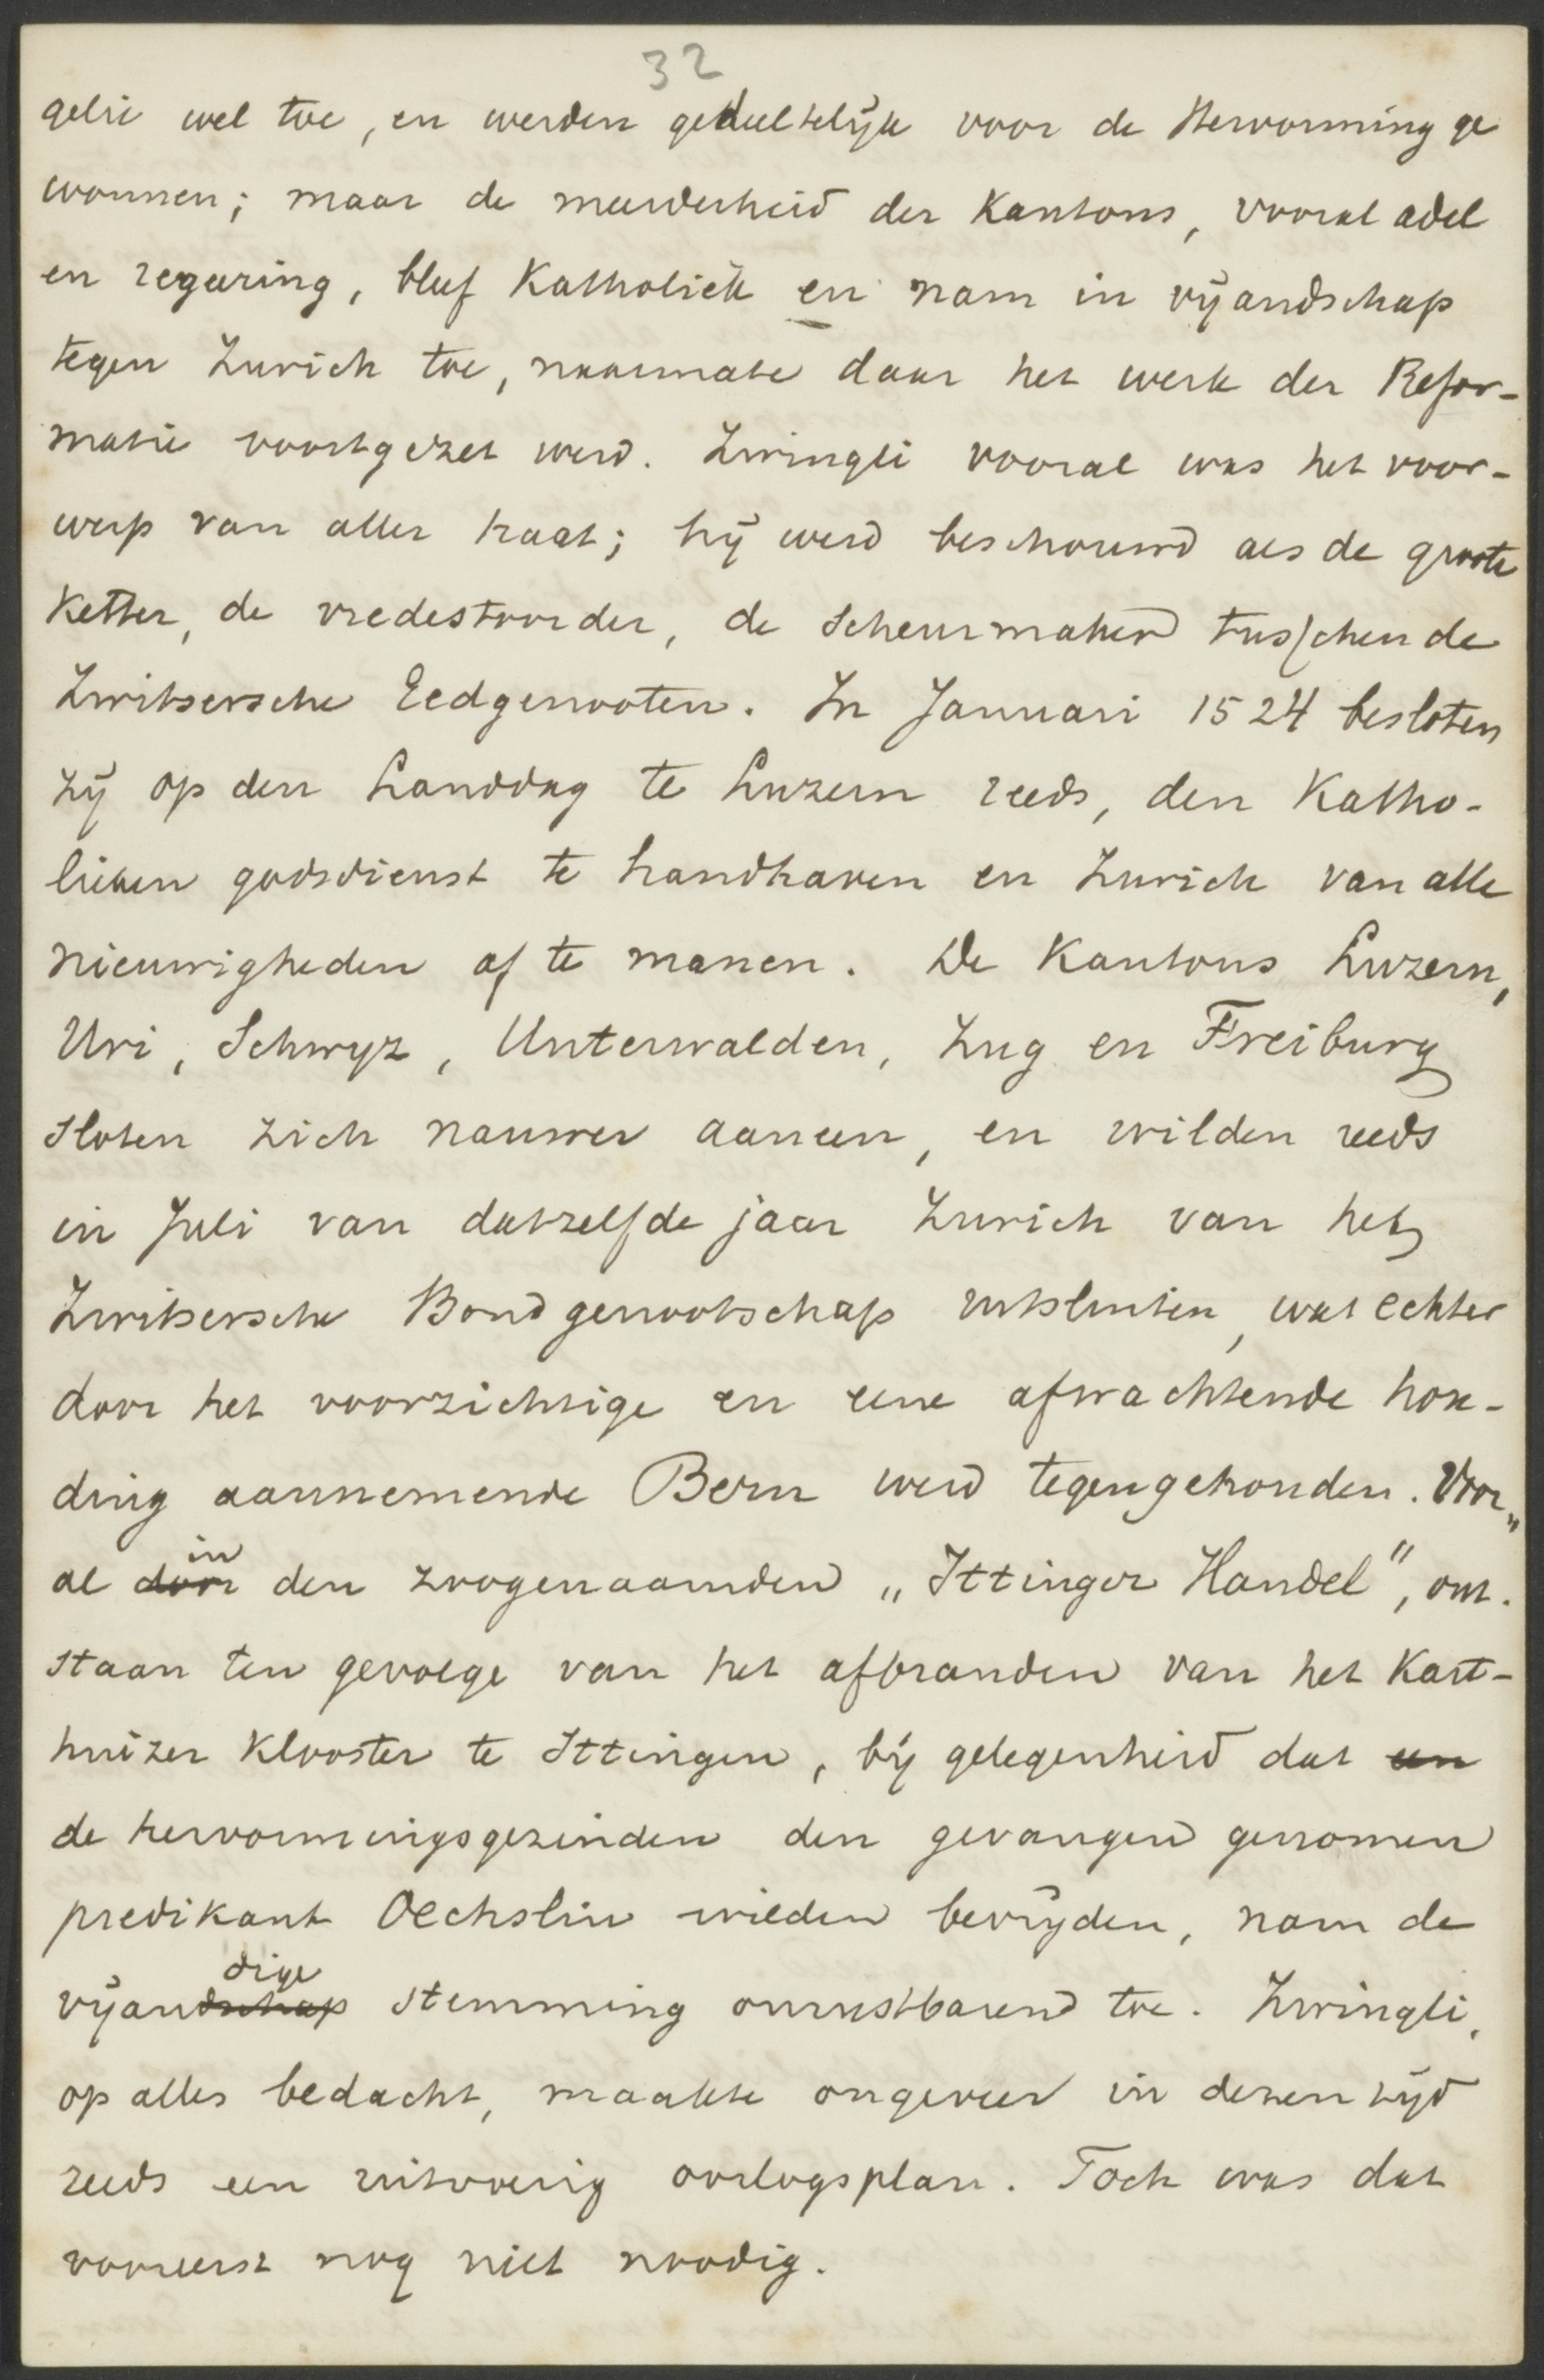 32
gelie wel toe, en werden gedeeltelijk voor de Hervorming ge
wonnen; maar de meerderheid der Kantons, vooral adel
en regeering, bleef Katholiek en nam in vijandschap
tegen Zurich toe, naarmate daar het werk der Refor-
matie voortgezet werd. Zwingli vooral was het voor-
werp van aller haat; hij werd beschouwd als de groote
Ketter, de vredestoorder, de scheurmaker tusschen de
Zwitsersche Eedgenooten. In Januari 1524 besloten
zij op den Landdag te Luzern reeds, den Katho-
lieken godsdienst te handhaven en Zurich van alle
nieuwigheden af te manen. De Kantons Luzern,
Uri, Schwyz, Unterwalden, Zug en Freiburg
sloten zich nauwer aaneen, en wilden reeds
in Juli van datzelfde jaar Zurich van het
Zwitsersche Bondgenootschap uitsluiten, wat echter
door het voorzichtige en eene afwachtende hou-
ding aannemende Bern werd tegengehouden. Voor„
al door in den zoogenaamden „Ittinger Handel", ont.
staan ten gevolge van het afbranden van het Kart-
huizer Klooster te Ittingen, bij gelegenheid dat een
de hervormingsgezinden den gevangen genomen
predikant Oechslin wilden bevrijden, nam de
vijandschap dige stemming onrustbarend toe. Zwingli,
op alles bedacht, maakte ongeveer in dezen tijd
reeds een uitvoerig oorlogsplan. Toch was dat
vooreerst nog niet noodig.